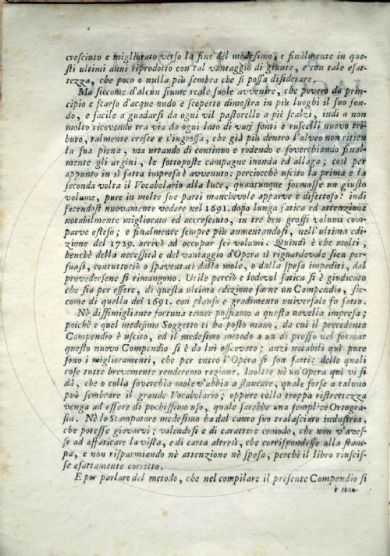 cresciuto e migliorato verso la fine del medesimo, e finalmente in que-
sti ultimi anni riprodotto con tal vantaggio di giunte, e con tale esat-
tezza, che poco o nulla più sembra che si possa disiderare.
Ma siccome d'alcun fiume reale suole avvenire, che povero da prin-
cipio e scarso d'acque nudo e scoperto dimostra in più luoghi il suo fon-
do, e facile a guadarsi da ogni vil pastorello a piè scalzi, indi a non
molto ricevendo tra via da ogni lato da varj fonti e ruscelli nuovo tri-
buto, talmente cresce e s'ingrossa, che già più dentro l'alveo non ritien
la sua piena, ma urtando di continuo e rodendo e soverchiando final-
mente gli argini, le sottoposte campagne inonda ed allaga; così per
appunto in sì fatta impresa è avvenuto: perciocchè uscito la prima e la
seconda volta il Vocabolario alla luce, quantunque formasse un giusto
volume, pure in molte sue parti manchevole apparve e difettoso: indi
facendosi nuovamente vedere nel 1691. dopo lunga fatica ed attenzione
notabilmente migliorato ed accresciuto, in tre ben grossi volumi com-
parve esteso; e finalmente sempre più aumentandosi, nell'ultima edi-
zione del 1729. arrivò ad occupar sei volumi. Quindi è che molti,
benchè della necessità e del vantaggio d'Opera sì riguardevole sien per-
suasi, contuttociò o spaventati dalla mole, o dalla spesa impediti, dal
provvedersene si rimangono. Utile perciò e lodevol fatica si è giudicato
che sia per essere, di questa ultima edizione farne un Compendio, sic-
come di quella del 1691. con plauso e gradimento universale fu fatto.
Nè dissimigliante fortuna tener possiamo a questa novella impresa;
poichè e quel medesimo Soggetto ci ha posto mano, da cui il precedente
Compendio è uscito, ed il medesimo metodo a un di presso nel formar
questo nuovo Compendio si è da lui osservato; anzi notabili qui pote
sono i miglioramenti, che per entro l'Opera si son fatti: delle quali
cose tutte brevemente renderemo ragione. Inoltre nè un'Opera qui vi si
dà, che o colla soverchia mole v'abbia a stancare, quale forse a taluno
può sembrare il grande Vocabolario; oppure colla troppa ristrettezza
venga ad essere di pochissimo uso, quale sarebbe una semplice Ortogra-
fia. Nè lo Stampatore medesimo ha dal canto suo tralasciato industria,
che potesse giovarvi; valendosi e di carattere comodo, che non v'aves-
se ad affaticare la vista, e di carta altresì, che corrispondesse alla stam-
pa, e non risparmiando nè attenzione nè spesa, perchè il libro riuscis-
se esattamente corretto.
E per parlare del metodo, che nel compilare il presente Compendio si